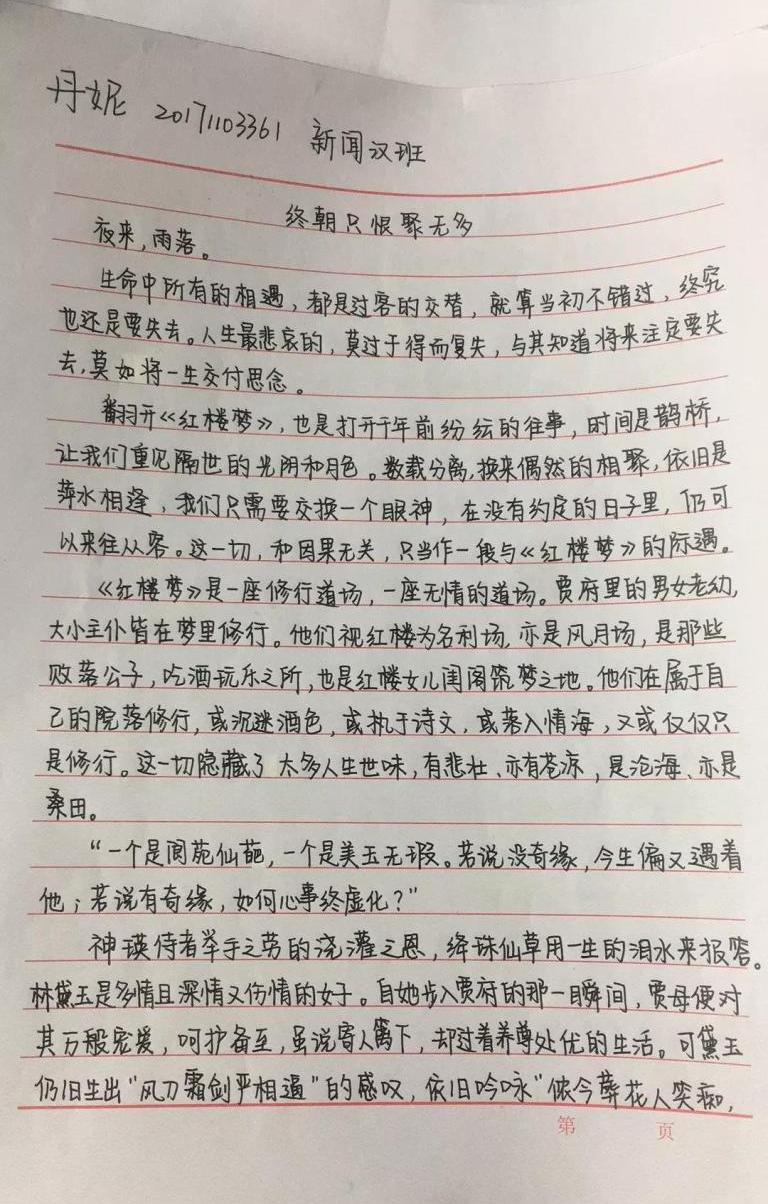 丹妮 20171103361 新闻汉班
终朝只恨聚无多
夜来,雨落。
生命中所有的相遇,都是过客的交替,就算当初不错过,终究
也还是要失去。人生最悲哀的,莫过于得而复失,与其知道将来注定要失
去,莫如将一生交付思念。
翻开《红楼梦》,也是打开千年前纷纭的往事,时间是鹊桥,
让我们重见隔世的光阴和月色。数载分离,换来偶然的相聚,依旧是
萍水相逢,我们只需要交换一个眼神,在没有约定的日子里,仍可
以来往从容。这一切,和因果无关,只当作一段与《红楼梦》的际遇。
《红楼梦》是一座修行道场,一座无情的道场。贾府里的男女老幼,
大小主仆皆在梦里修行。他们视红楼为名利场,亦是风月场,是那些
败落公子,吃酒玩乐之所,也是红楼女儿闺阁筑梦之地。他们在属于自
己的院落修行,或沉迷酒色,或执于诗文,或落入情海,又或仅仅只
是修行。这一切隐藏了太多人生世味,有悲壮、亦有苍凉,是沧海、亦是
桑田。
“一个是阆苑仙葩,一个是美玉无瑕。若说没奇缘,今生偏又遇着
他;若说有奇缘,如何心事终虚化?”
神瑛侍者举手之劳的浇灌之恩,绛珠仙草用一生的泪水来报答。
林黛玉是多情且深情又伤情的女子。自她步入贾府的那一瞬间,贾母便对
其万般宠爱,呵护备至,虽说寄人篱下,却过着养尊处优的生活。可黛玉
仍旧生出“风刀霜剑严相逼”的感叹,依旧吟咏“侬今葬花人笑痴,
第 页